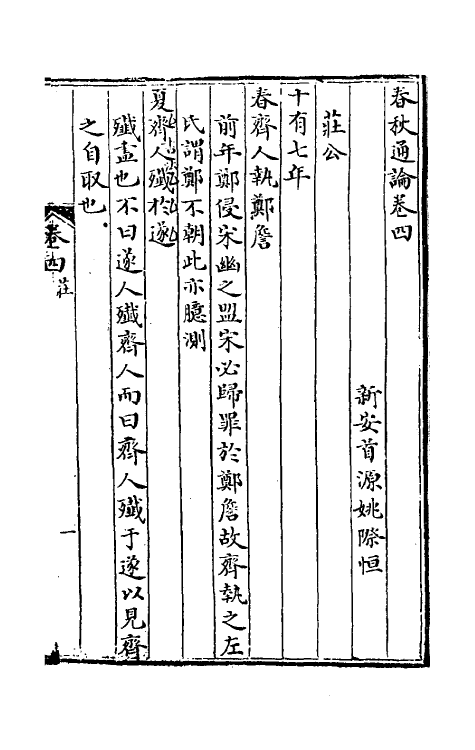 春秋通論卷四
新安首源姚際恒
莊公
十有七年
春齊人執鄭詹
前年鄭侵宋幽之盟宋必歸罪於鄭詹故齊執之左
氏謂鄭不朝此亦臆測
夏齊人殱於遂
殱盡也不曰遂人殱齊人而曰齊人殱于遂以見齊
之自取也
卷四
莊
一